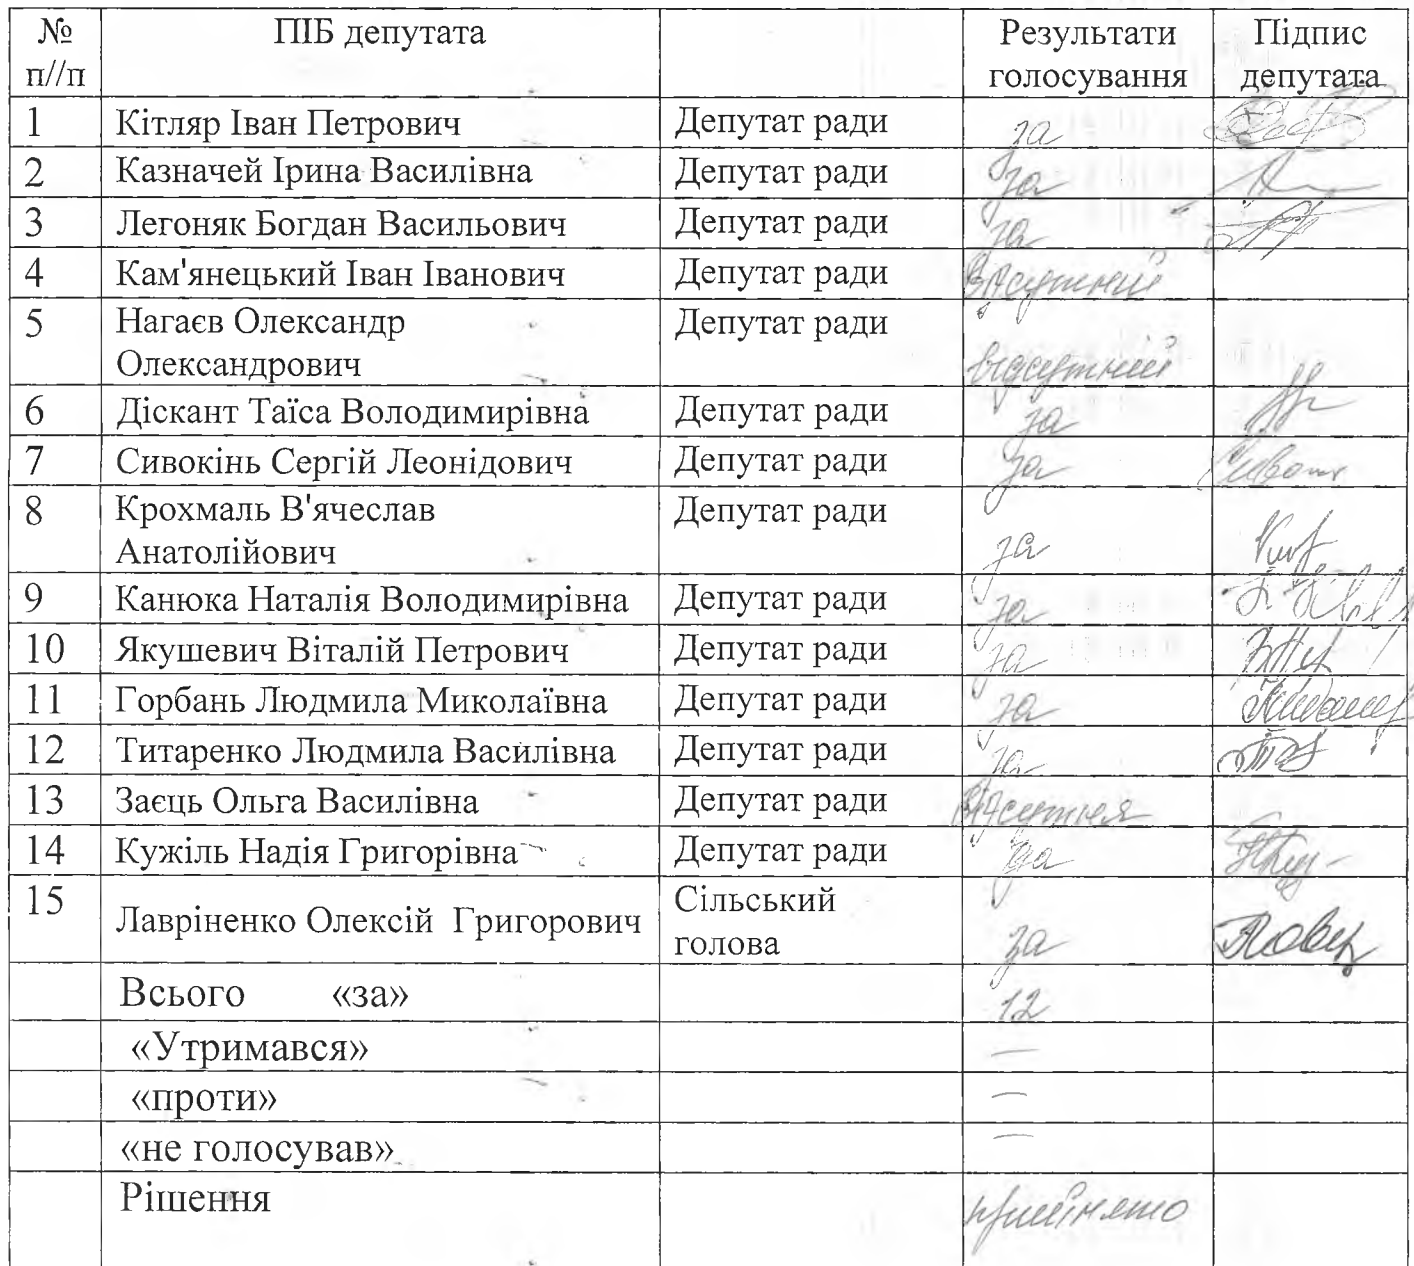 № п//п ПІБ депутата Результати голосування Підпис депутата
1 Кітляр Іван Петрович Депутат ради за
2 Казначей Ірина Василівна Депутат ради за
3 Легоняк Богдан Васильович Депутат ради за
4 Кам'янецький Іван Іванович Депутат ради відсутній
5 Нагаєв Олександр Олександрович Депутат ради відсутній
6 Діскант Таїса Володимирівна Депутат ради за
7 Сивокінь Сергій Леонідович Депутат ради за
8 Крохмаль В'ячеслав Анатолійович Депутат ради за
9 Канюка Наталія Володимирівна Депутат ради за
10 Якушевич Віталій Петрович Депутат ради за
11 Горбань Людмила Миколаївна Депутат ради за
12 Титаренко Людмила Василівна Депутат ради за
13 Заєць Ольга Василівна Депутат ради відсутня
14 Кужіль Надія Григорівна Депутат ради за
15 Лавріненко Олексій Григорович Сільський голова за
Всього «за» 12
«Утримався» —
«проти» —
«не голосував» —
Рішення прийнято